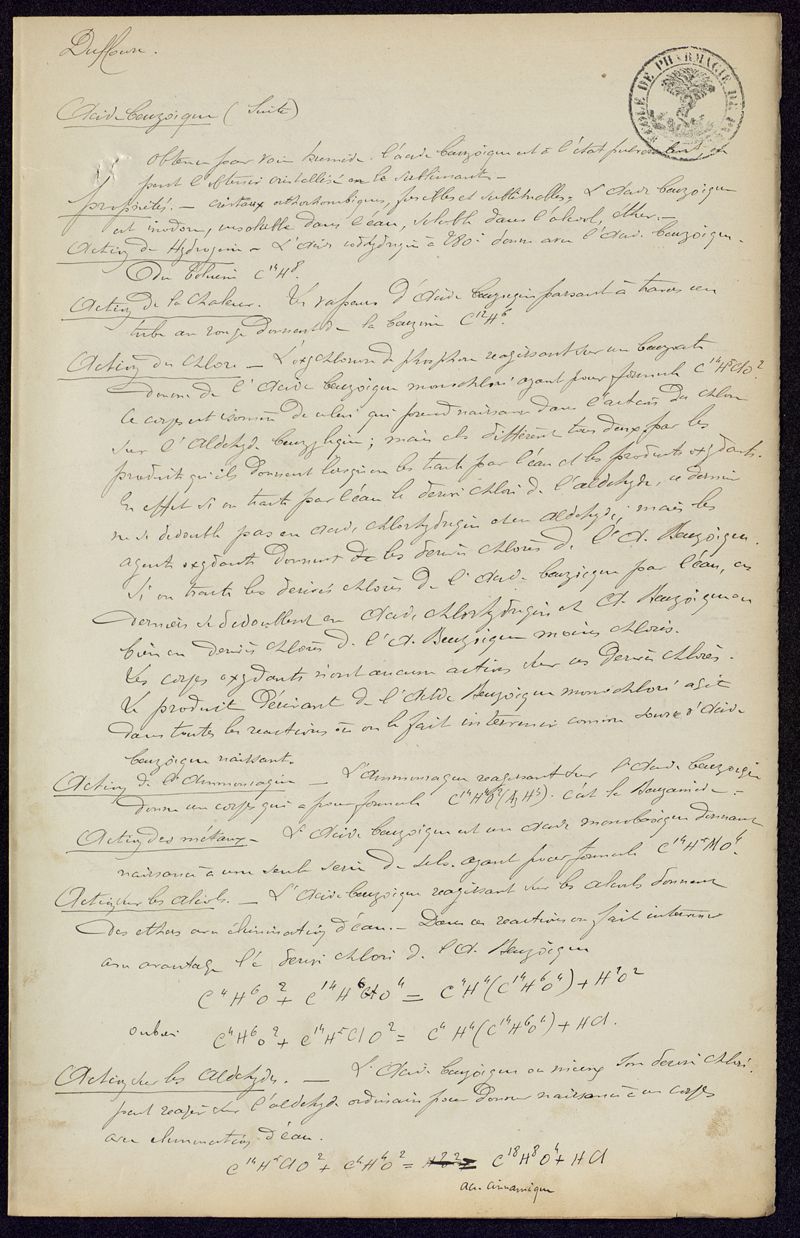 Dufour.
ECOLE DE PHARMACIE DE
Acide benzoïque (Suite)
Obtenu par voie humide l'acide benzoïque est à l'état pulvérulent, on
peut l'obtenir cristallisé en le sublimant. —
Propriétés. — cristaux orthorhombiques, fusibles et sublimables. L'Acide benzoïque
est inodore, insoluble dans l'eau, soluble dans l'alcool, éther. —
Action de l'Hydrogène — L'Acide iodhydrique à 280° donne avec l'Acide Benzoïque.
du toluène C14H8.
Action de la Chaleur. Les vapeurs d'Acide Benzoïque passant à travers un
tube au rouge donnent de la benzine C12H6.
Action du Chlore — L'oxychlorure de phosphore réagissant sur un benzoate
donne de l'Acide benzoïque monochloré ayant pour formule C14H5ClO2.
Ce corps est isomère de celui qui prend naissance dans l'action du chlore
sur l'Aldehyde benzylique; mais ils diffèrent tous deux par les
produits qu'ils donnent lorsqu'on les traite par l'eau et les produits oxydants.
En effet si on traite par l'eau le dérivé chloré de l'aldehyde, ce dernier
ne se dédouble pas en Acide chlorhydrique et en Aldehyde; mais les
agents oxydants donnent de les dérivés chlorés de l'A. Benzoïque.
Si on traite les dérivés chlorés de l'Acide benzoïque par l'eau, ces
derniers se dédoublent en Acide Chlorhydrique et A. Benzoïque ou
bien en dérivés chlorés de l'A. Benzoïque moins chlorés.
Les corps oxydants n'ont aucune action sur ces Dérivés chlorés.
Le produit Dérivant de l'Acide Benzoïque monochloré agit
dans toutes les reactions où on le fait intervenir comme source d'Acide
benzoïque naissant.
Action de l'Ammoniaque — L'Ammoniaque reagissant sur l'Acide benzoïque
donne un corps qui a pour formule C14H4O2(AzH3). c'est la Benzamide. —
Action des métaux — L'Acide benzoïque est un Acide monobasique donnant
naissance à une seule serie de sels ayant pour formule C14H5MO4.
Action sur les alcools. — L'Acide benzoïque reagissant sur les alcools donnent
des ethers avec élimination d'eau. — Dans ces reactions on fait intervenir
avec avantage le dérivé chloré de l'A. Benzoïque
C4H6O2 + C14H6O4 = C4H4(C14H6O4) + H2O2
ou bien C4H6O2 + C14H5ClO2 = C4H4(C14H6O4) + HCl.
Action sur les Aldehydes. — L'Acide benzoïque ou mieux son dérivé chloré
peut reagir sur l'aldehyde ordinaire pour donner naissance à un corps
avec elimination d'eau.
C14H5ClO2 + C4H4O2 = C18H8O4 + HCl
ac. cinnamique